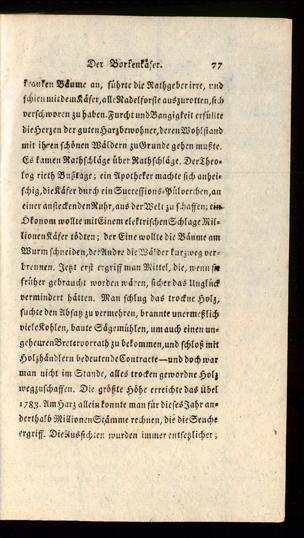 Der Borkenkäfer. 77
kranken Bäume an, führte die Rathgeber irre, und
schien mit dem Käfer, alle Nadelforste auszurotten, sich
verschworen zu haben. Furcht und Bangigkeit erfüllte
die Herzen der guten Harzbewohner, deren Wohlstand
mit ihren schönen Wäldern zu Grunde gehen mußte.
Es kamen Rathschläge über Rathschläge. Der Theo-
log rieth Bußtage; ein Apotheker machte sich anhei-
schig, die Käfer durch ein Successions-Pülverchen, an
einer ansteckenden Ruhr, aus der Welt zu schaffen; ein
Ökonom wollte mit Einem elektrischen Schlage Mil-
lionen Käfer tödten; der Eine wollte die Bäume am
Wurm schneiden, der Andre die Wälder kurzweg ver-
brennen. Jetzt erst ergriff man Mittel, die, wenn sie
früher gebraucht worden wären, sicher das Unglück
vermindert hätten. Man schlug das trockne Holz,
suchte den Absatz zu vermehren, brannte unermeßlich
viele Kohlen, baute Sägemühlen, um auch einen un-
geheuren Bretervorrath zu bekommen, und schloß mit
Holzhändlern bedeutende Contracte — und doch war
man nicht im Stande, alles trocken gewordne Holz
wegzuschaffen. Die größte Höhe erreichte das Übel
1783. Am Harz allein konnte man für dieses Jahr an-
derthalb Millionen Stämme rechnen, die die Seuche
ergriff. Die Aussichten wurden immer entsetzlicher;